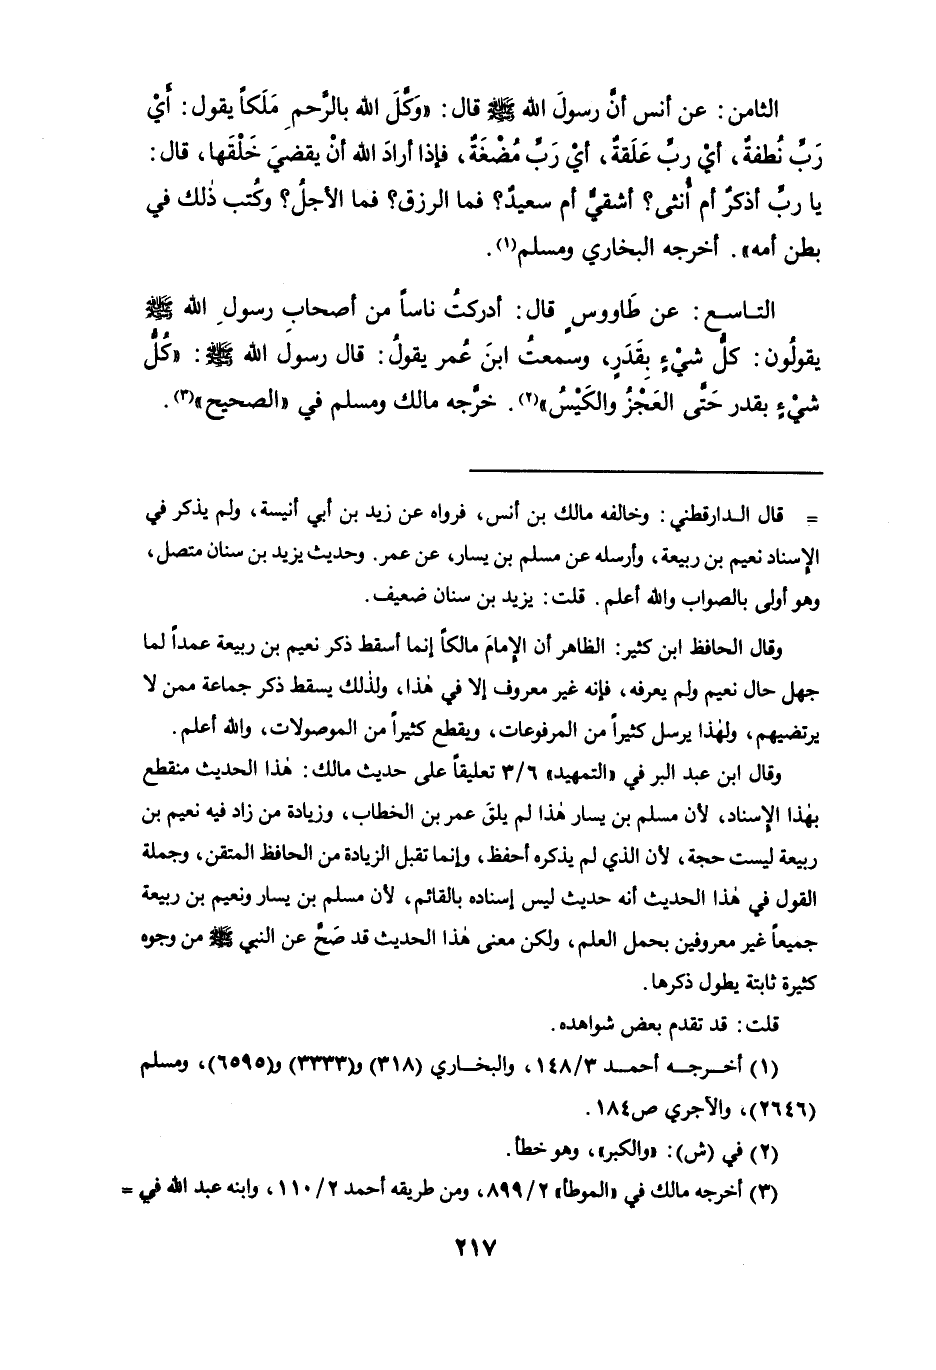 الثامن: عن أنس أنَّ رسولَ الله ﷺ قال: «وَكَّلَ الله بالرَّحمِ مَلَكاً يقول: أَيْ
رَبِّ نُطفةٌ، أيْ ربِّ عَلَقةٌ، أيْ رَبِّ مُضْغَةٌ، فإذا أرادَ الله أنْ يقضيَ خَلْقَها، قال:
يا ربِّ أذكرٌ أم أُنثى؟ أشقيٌّ أم سعيدٌ؟ فما الرزق؟ فما الأجلُ؟ وكُتب ذٰلك في
بطن أمه». أخرجه البخاري ومسلم(١).
التاسع: عن طَاووسٍ قال: أدركتُ ناساً من أصحابِ رسولِ الله ﷺ
يقولُون: كلُّ شيْءٍ بِقَدَرٍ، وسمعتُ ابنَ عُمر يقولُ: قال رسول الله ﷺ: «كُلُّ
شيْءٍ بقدر حَتَّى العَجْزُ والكَيْسُ»(٢). خرَّجه مالك ومسلم في «الصحيح»(٣).
= قال الدارقطني: وخالفه مالك بن أنس، فرواه عن زيد بن أبي أنيسة، ولم يذكر في
الإسناد نعيم بن ربيعة، وأرسله عن مسلم بن يسار، عن عمر. وحديث يزيد بن سنان متصل،
وهو أولى بالصواب والله أعلم. قلت: يزيد بن سنان ضعيف.
وقال الحافظ ابن كثير: الظاهر أن الإمامَ مالكاً إنما أسقط ذكر نعيم بن ربيعة عمداً لما
جهل حال نعيم ولم يعرفه، فإنه غير معروف إلا في هٰذا، ولذٰلك يسقط ذكر جماعة ممن لا
يرتضيهم، ولهٰذا يرسل كثيراً من المرفوعات، ويقطع كثيراً من الموصولات، والله أعلم.
وقال ابن عبد البر في «التمهيد» ٣/٦ تعليقاً على حديث مالك: هٰذا الحديث منقطع
بهٰذا الإسناد، لأن مسلم بن يسار هٰذا لم يلقَ عمر بن الخطاب، وزيادة من زاد فيه نعيم بن
ربيعة ليست حجة، لأن الذي لم يذكره أحفظ، وإنما تقبل الزيادة من الحافظ المتقن، وجملة
القول في هٰذا الحديث أنه حديث ليس إسناده بالقائم، لأن مسلم بن يسار ونعيم بن ربيعة
جميعاً غير معروفين بحمل العلم، ولكن معنى هٰذا الحديث قد صَحَّ عن النبي ﷺ من وجوه
كثيرة ثابتة يطول ذكرها.
قلت: قد تقدم بعض شواهده.
(١) أخرجه أحمد ١٤٨/٣، والبخاري (٣١٨) و(٣٣٣٣) و(٦٥٩٥)، ومسلم
(٢٦٤٦)، والآجري ص١٨٤.
(٢) في (ش): «والكبر»، وهو خطأ.
(٣) أخرجه مالك في «الموطأ» ٨٩٩/٢، ومن طريقه أحمد ١١٠/٢، وابنه عبد الله في =
٢١٧